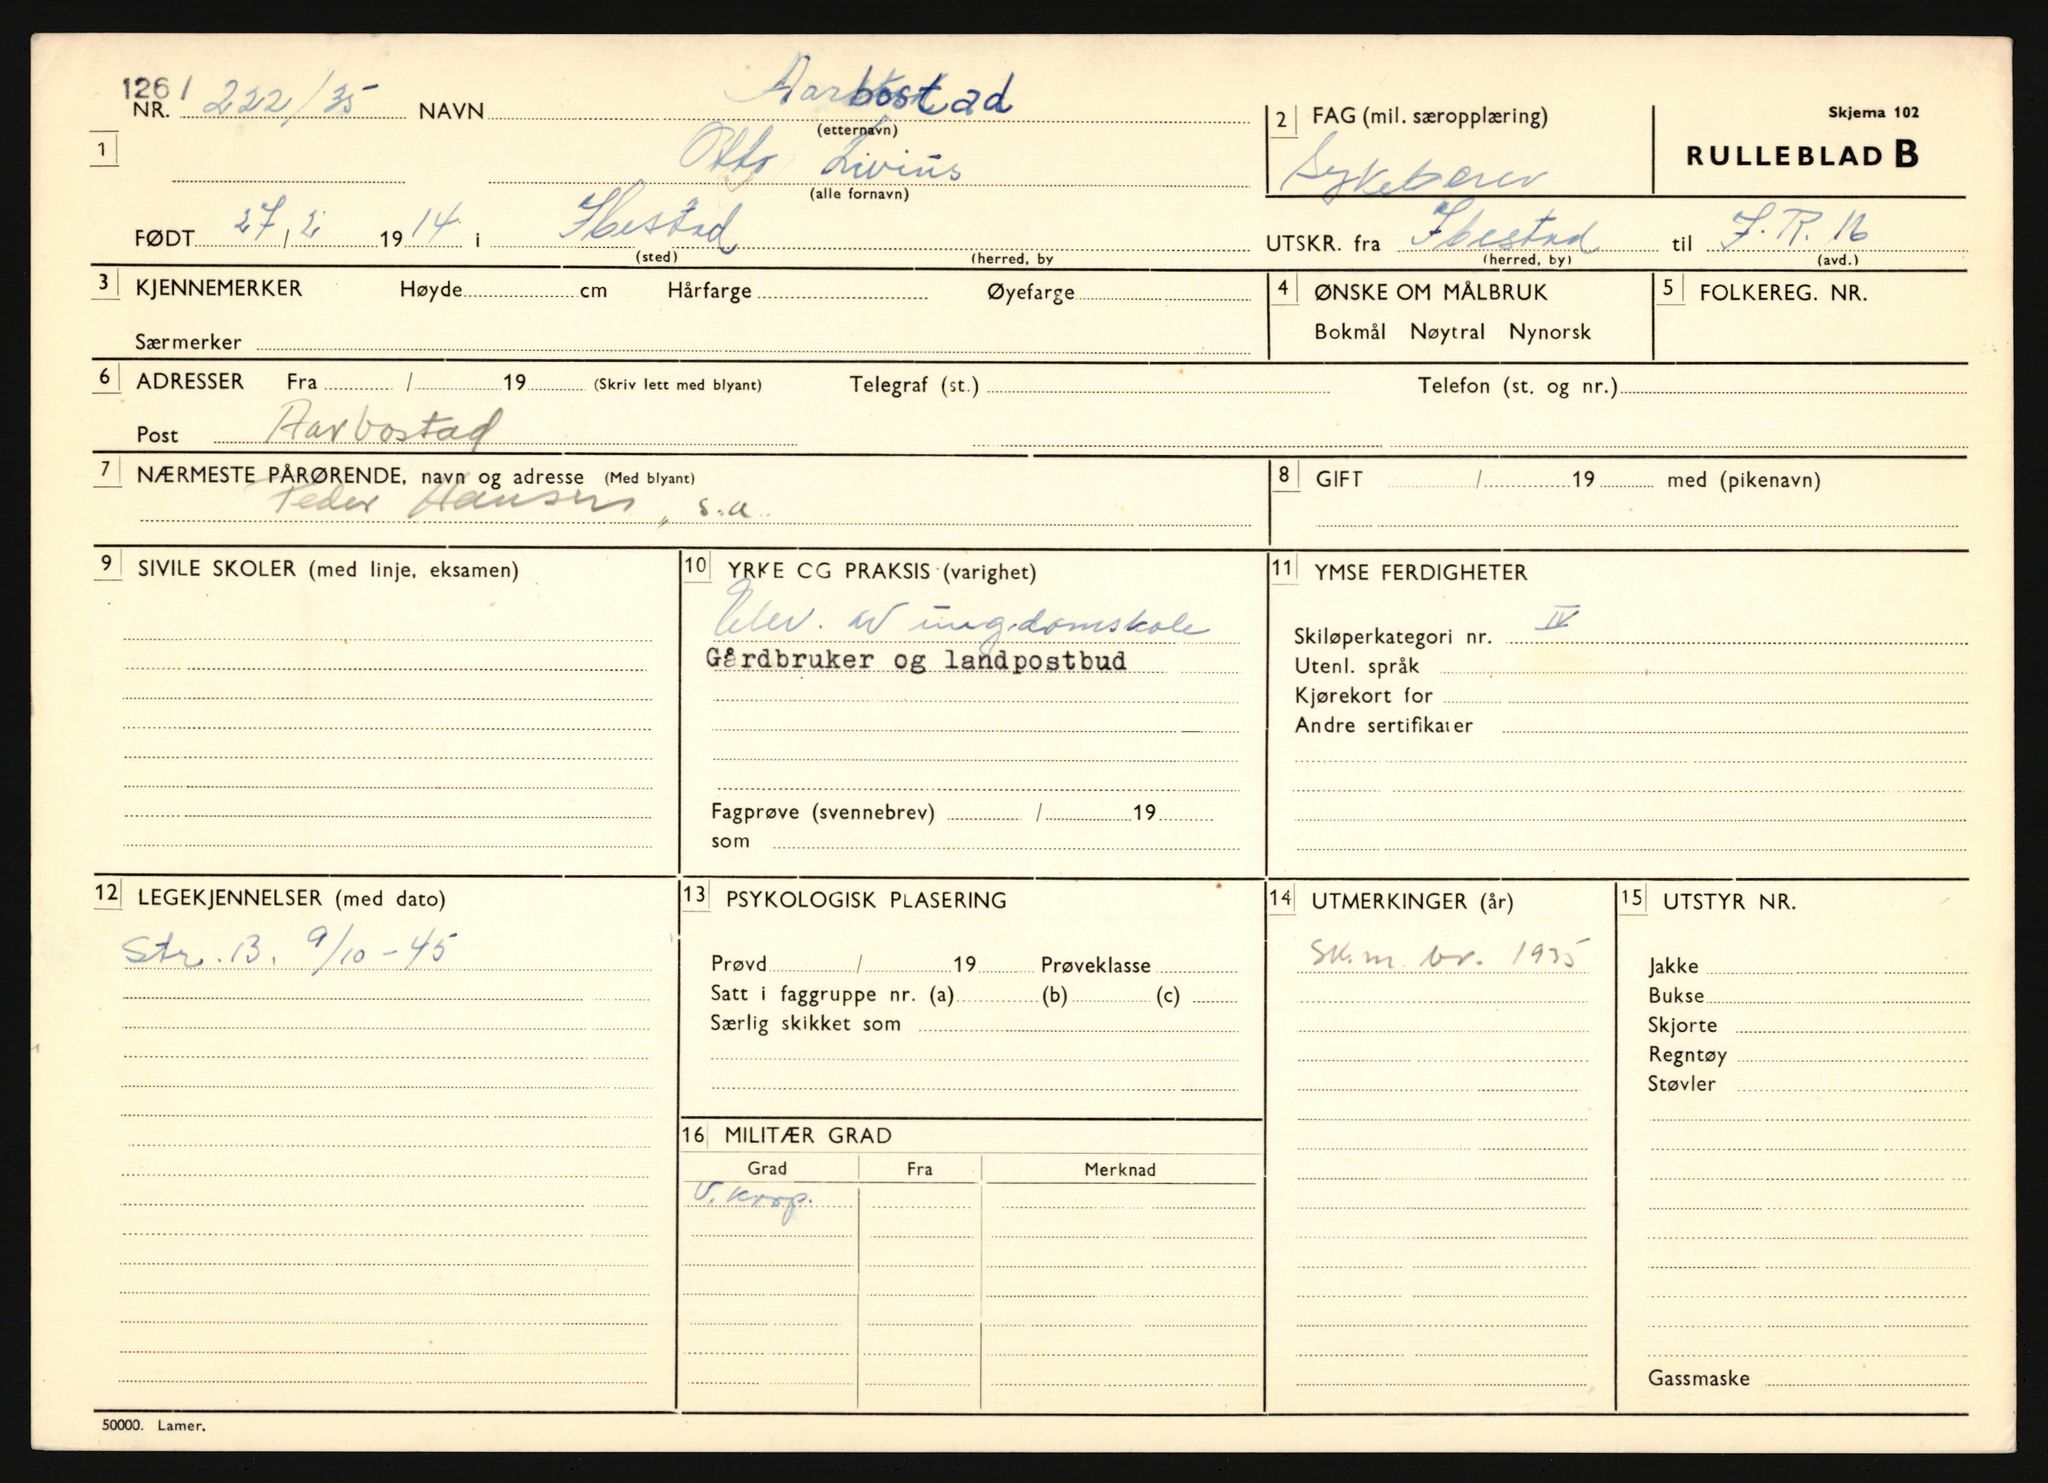 126 /
NR. 222/35 NAVN Aarbostad
(etternavn)
2 FAG (mil. særopplæring)
Sykebærer
Skjema 102
RULLEBLAD B
1
Otto Livius
(alle fornavn)
FØDT 27 / 2 1914 i Ibestad
(sted) (herred, by
UTSKR. fra Ibestad til I.R. 16
(herred, by) (avd.)
3 KJENNEMERKER Høyde cm Hårfarge Øyefarge
Særmerker
4 ØNSKE OM MÅLBRUK
Bokmål Nøytral Nynorsk
5 FOLKEREG. NR.
6 ADRESSER Fra / 19 (Skriv lett med blyant) Telegraf (st.) Telefon (st. og nr.)
Post Aarbostad
7 NÆRMESTE PÅRØRENDE, navn og adresse (Med blyant)
Peder Hansen, s.a.
8 GIFT / 19 med (pikenavn)
9 SIVILE SKOLER (med linje, eksamen)
10 YRKE OG PRAKSIS (varighet)
Elev. av ungdomskole
Gårdbruker og landpostbud
Fagprøve (svennebrev) / 19
som
11 YMSE FERDIGHETER
Skiløperkategori nr. IV
Utenl. språk
Kjørekort for
Andre sertifikater
12 LEGEKJENNELSER (med dato)
Str. B. 9/10-45
13 PSYKOLOGISK PLASERING
Prøvd / 19 Prøveklasse
Satt i faggruppe nr. (a) (b) (c)
Særlig skikket som
14 UTMERKINGER (år)
Sk.m. br. 1935
15 UTSTYR NR.
Jakke
Bukse
Skjorte
Regntøy
Støvler
Gassmaske
16 MILITÆR GRAD
Grad Fra Merknad
V. korp.
50000. Lamer.